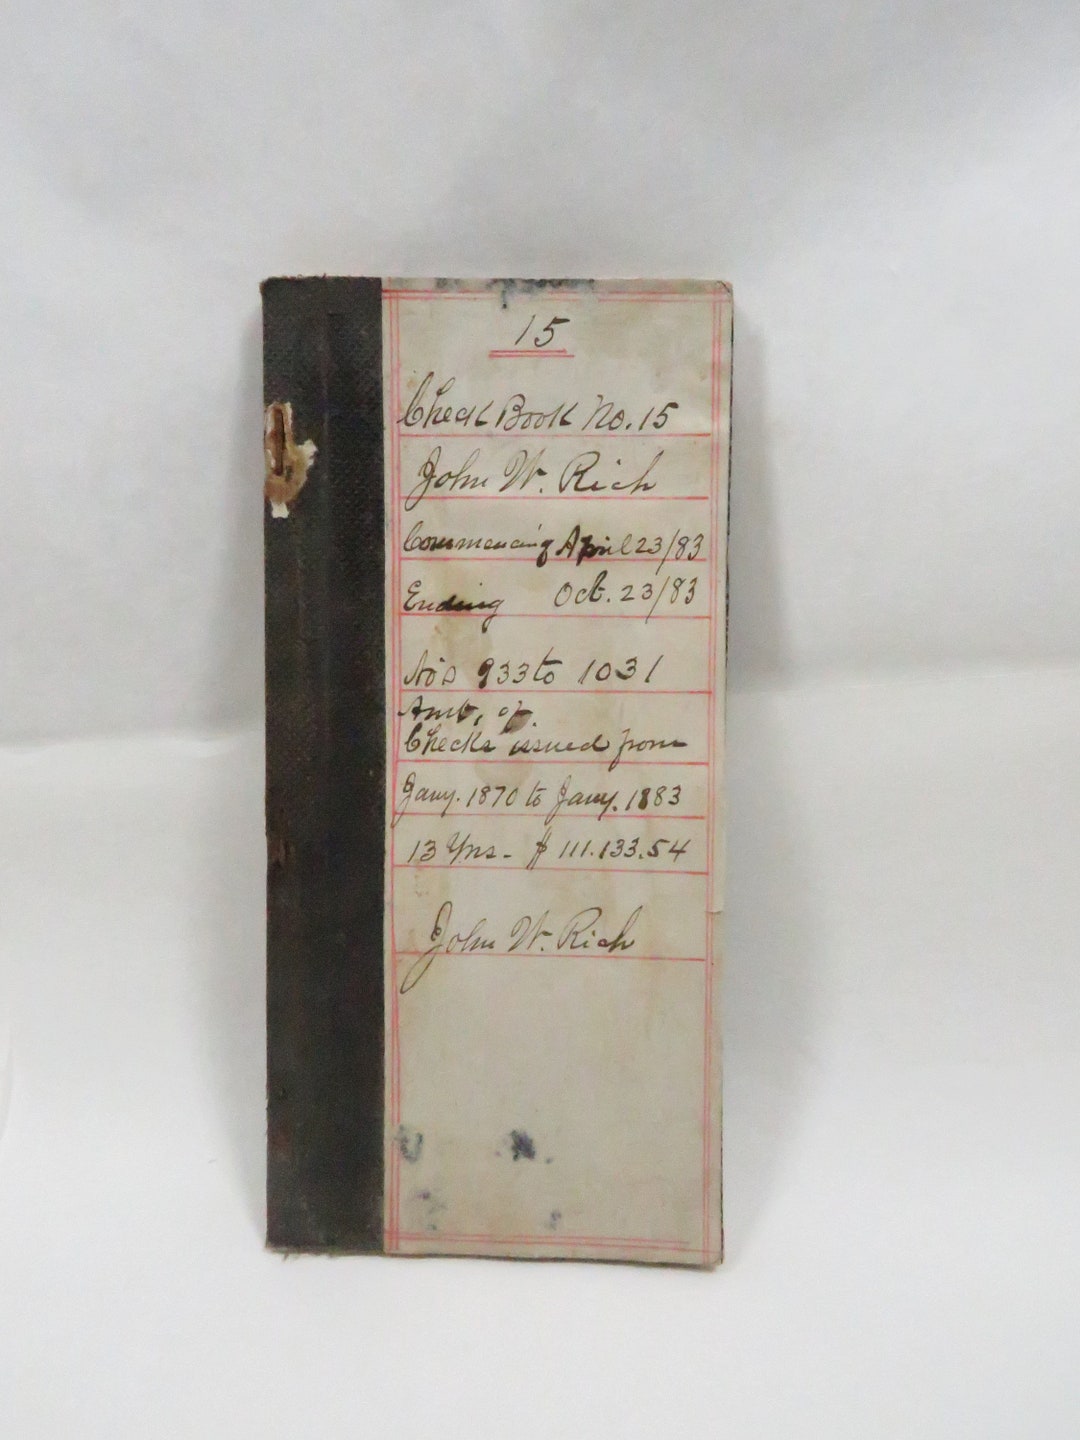 15
Check Book No. 15
John W. Rich
Commencing April 23/83
Ending Oct. 23/83
No's 933 to 1031
Amt. of
Checks issued from
Jany. 1870 to Jany. 1883
13 Yrs - $ 111.133.54
John W. Rich